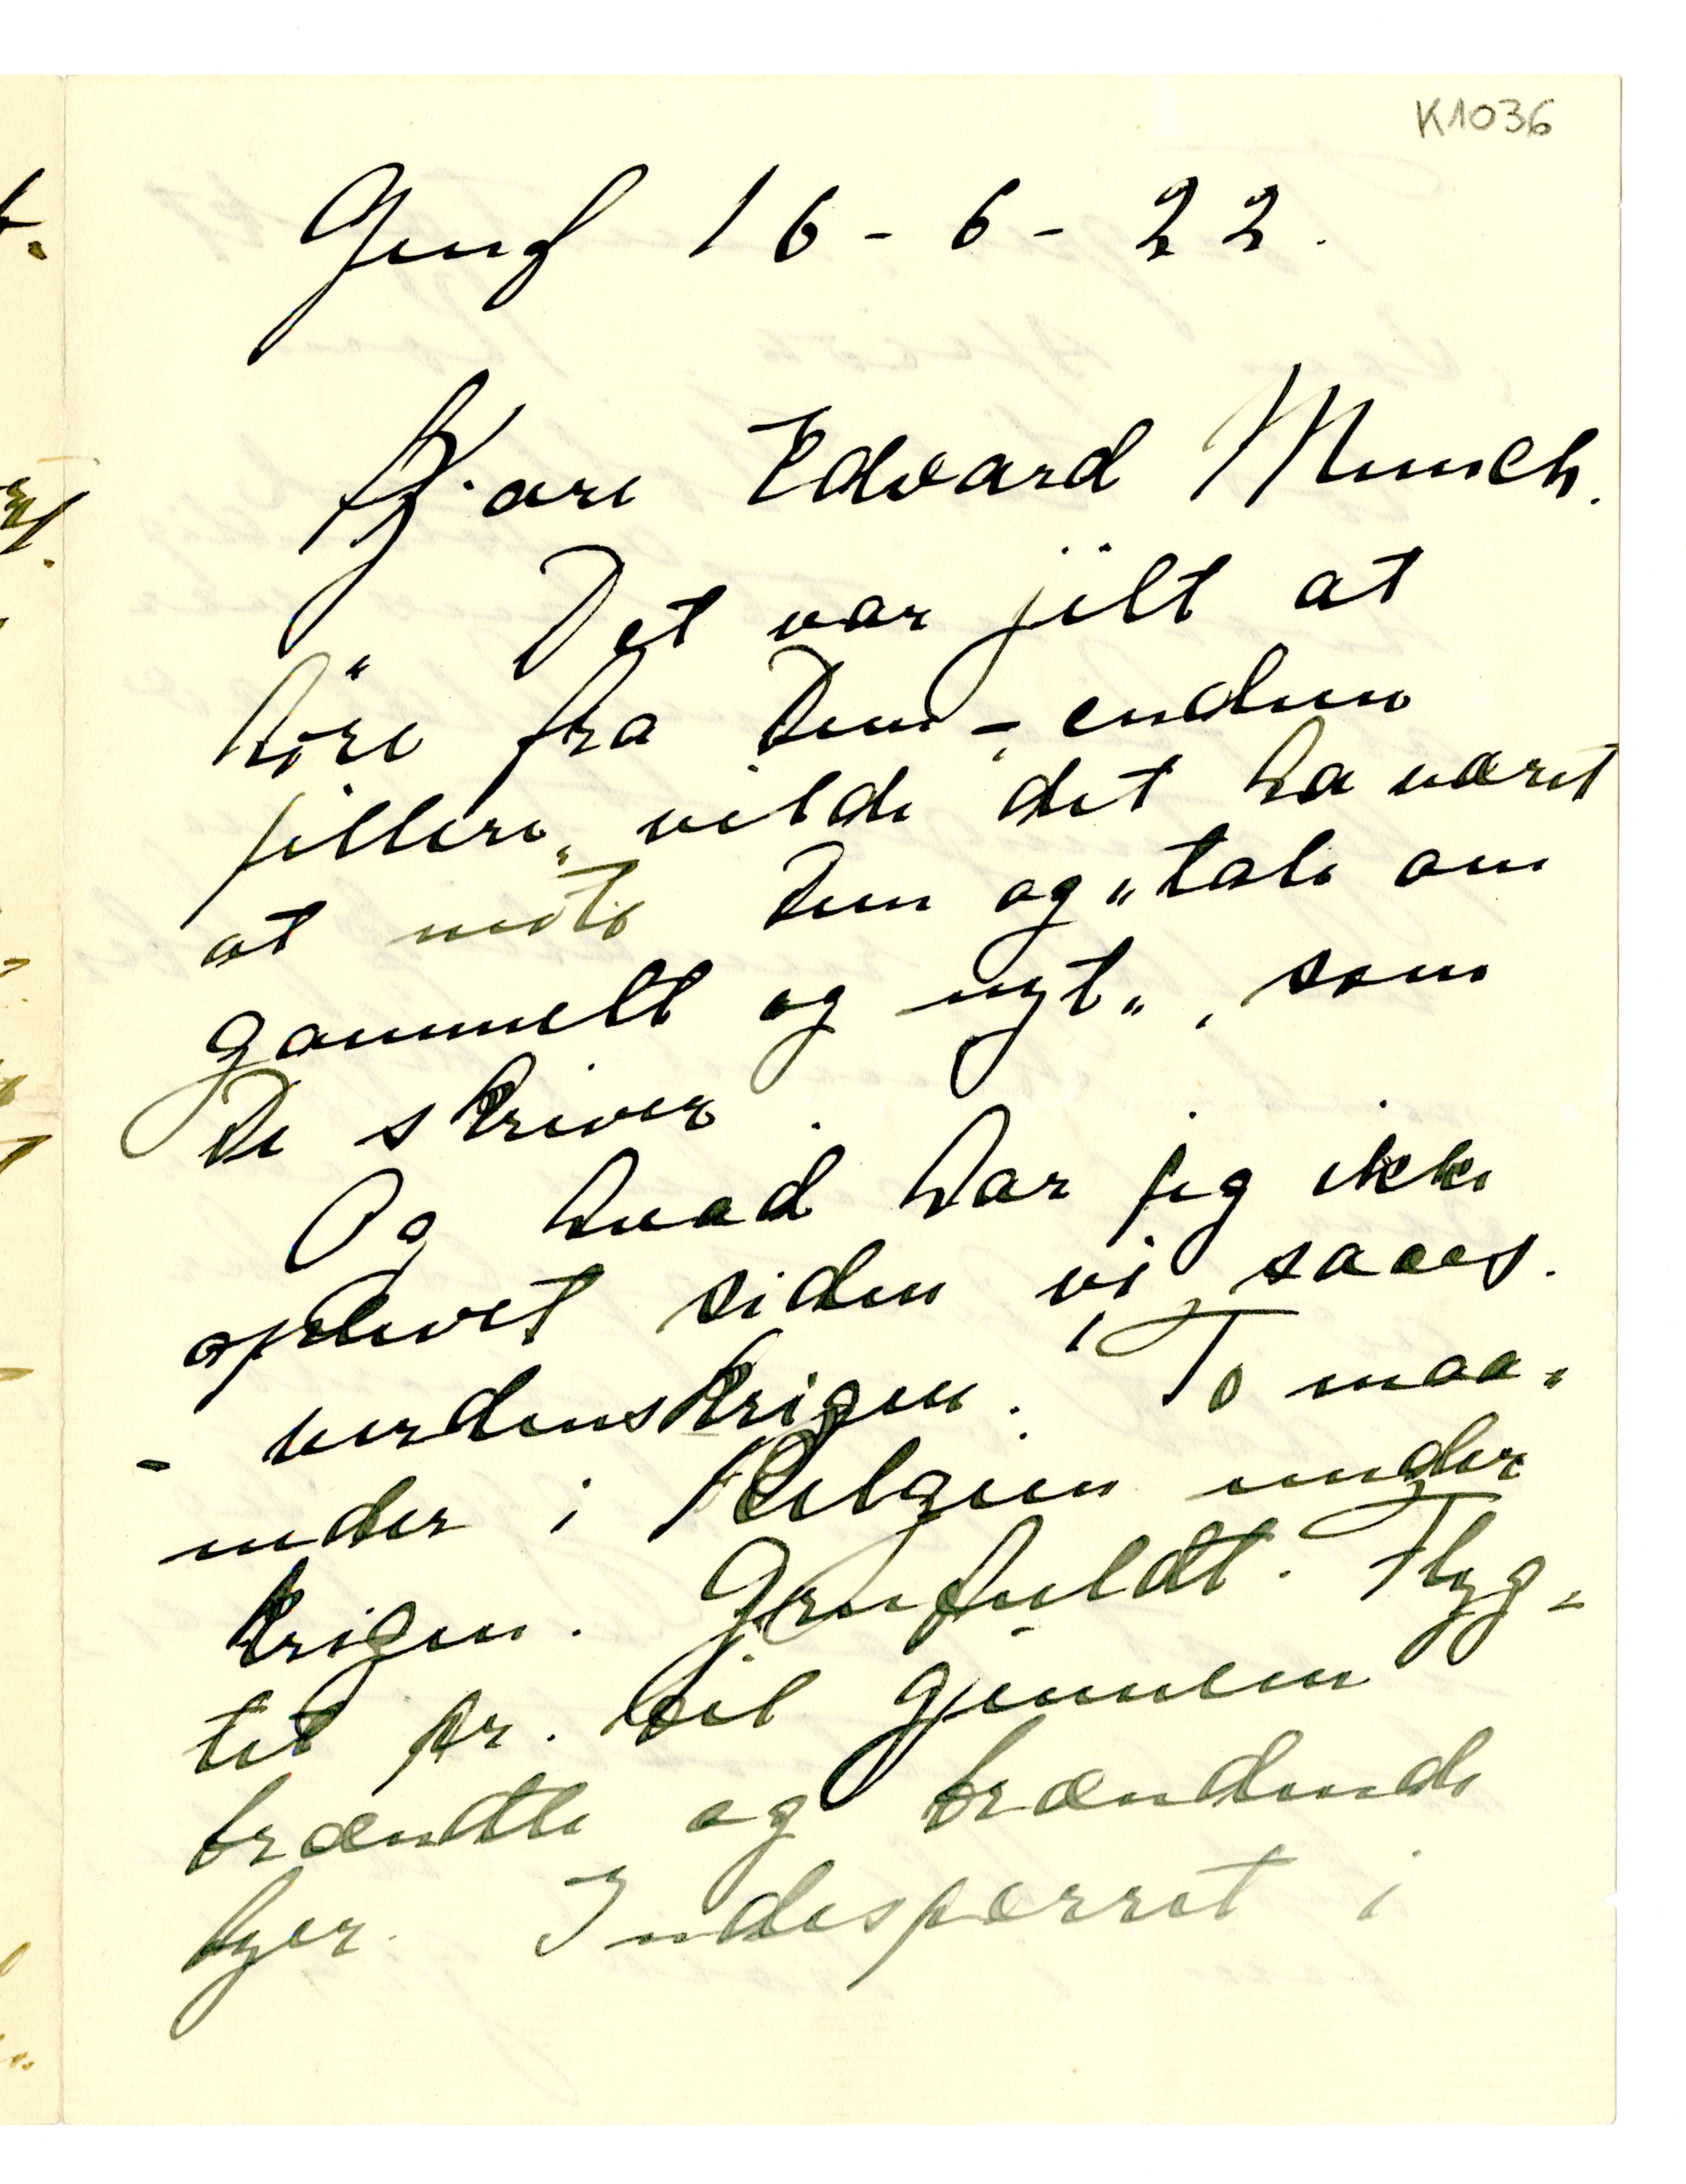 K1036
Genf 16-6-22.
Kjære Edvard Munch.
Det var jilt at
höre fra Dem - endnu
jillere vilde det ha været
at möte Dem og "tale om
gammelt og nyt", som
De skriver.
Og hvad har jeg ikke
oplevet siden vi saaes.
- verdenskrigen. To maa-
neder i Belgien under
krigen. Grufuldt. Flyg-
tet pr. bil gjennem
brændte og brændende
byer. Indesperret i